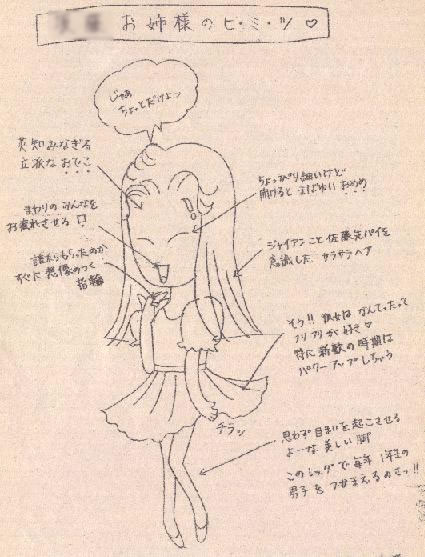 お姉様のヒ・ミ・ツ♡
じゃあ
ちょっとだけよン
英知みなぎる
立派なおでこ
まわりのみんなを
お疲れさせる口
誰からもらったのか
すぐに想像のつく
指輪
ちょっぴり細いけど
開けるとまばゆいおめめ
ジャイアンこと佐藤先パイを
意識した、サラサラヘア
そう!!彼女はなんてったって
フリフリが好き♡
特に新歓の時期は
パワーアップしちゃう
チラッ
思わず目まいを起こさせる
よーな美しい脚
この
で毎年1年生の
男子をつかまえるのさッ!!